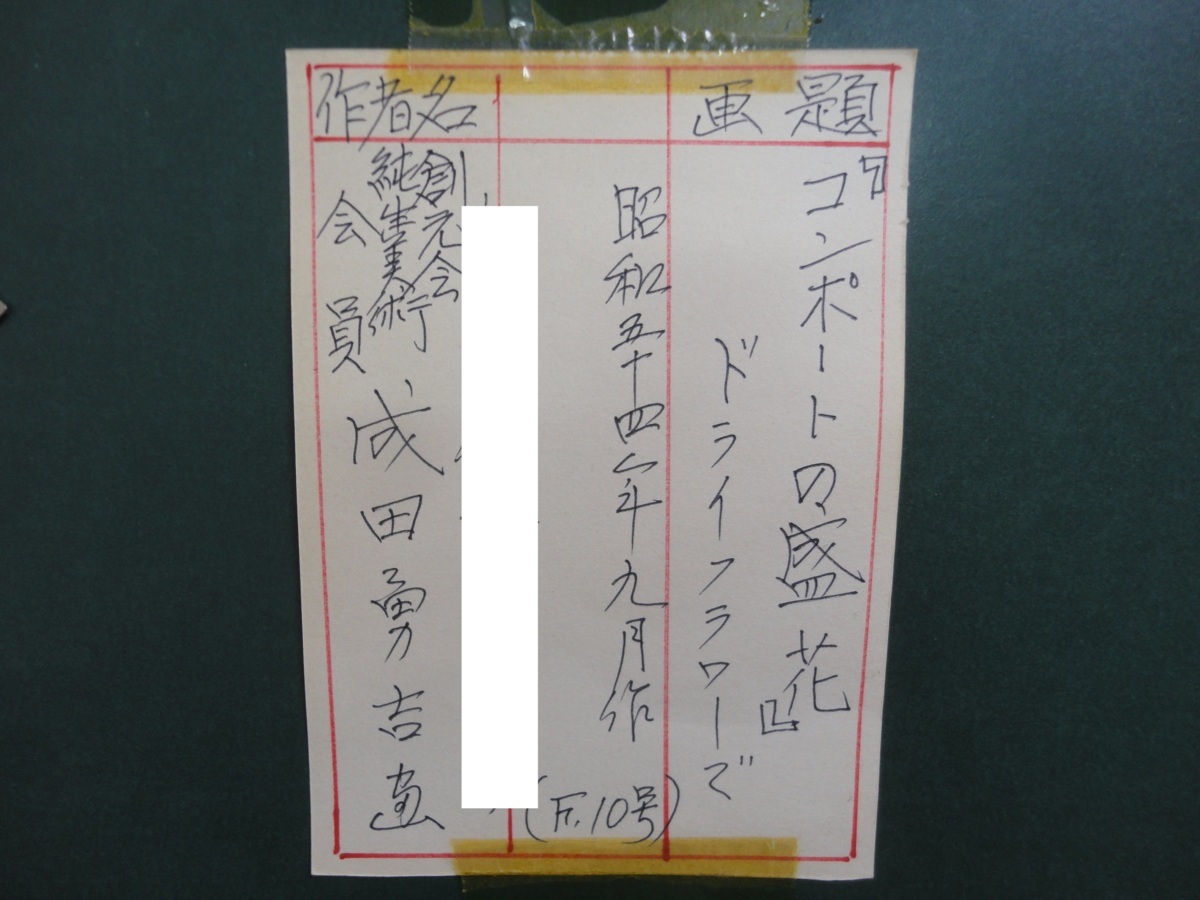 画題
『コンポートの盛花』
ドライフラワーで
昭和五十四年九月作
(F.10号)
作者名
創元会
純生美術
会員
成田勇吉画